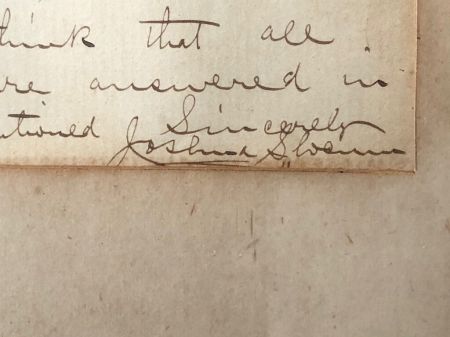 think that all
re answered in
tioned Sincerely
Joshua Slocum